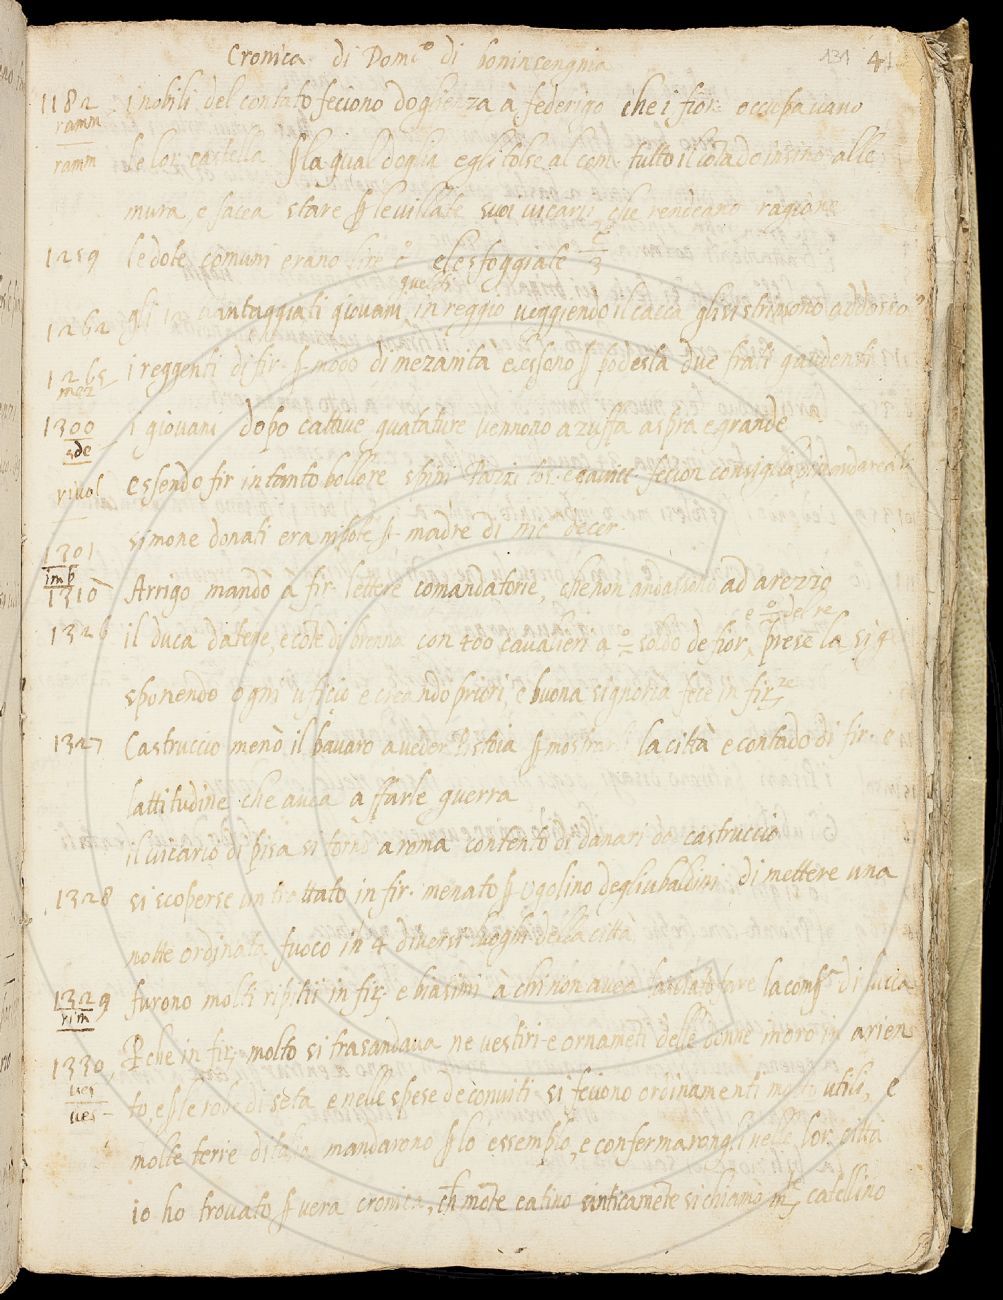 Cronica di Dom.co di boninsengnia
131 41
1182 i nobili del contato feciono doglienza à federigo che i fior. occupavano
ramm
ramm le lor castella p la qual doglia egli tolse al com. tutto il cotado insino alle
mura, e facea stare p le villate suoi vicarii che rendeano ragione
1259 le dote comuni erano lire c° e le sfoggiate
guelfi
1262 gli avantaggiati giovani in reggio veggiendo il cacca gli si strinsono addosso
1265 i reggenti di fir. p modo di mezanita elessono p podesta due frati gaudenti
mez
1300 i giovani dopo cattive guatature vennono a zuffa aspra e grande
sde
rivol essendo fir in tanto bollore spini pazzi tos. e cavicc. feciono consiglio
1301 simone donati era nipote p madre di nic. de cer.
imp
1310 Arrigo mandò à fir. lettere comandatorie, che non andassono ad arezzo
e del re
1326 il duca datene, e cote di brenna con 400 cavalieri a soldo de fior, prese la sig
sponendo ogni uficio e creando priori, e buona signoria fece in firze
1327 Castruccio menò il bavaro a veder Pistoia p mostrarli la città e contado di fir. e
lattitudine che avea a ffarle guerra
il vicario di pisa si tornò a roma contento di danari da castruccio
1328 si scoperse un trattato in fir. menato p ugolino degli ubaldini di mettere una
notte ordinata fuoco in 4 diversi luoghi della città
1329 furono molti ripitii in fir. e biasimi à chi non avea lasciato fare la comp di lucca
rim
1330 Pche in fir. molto si trasandava ne vestiri e ornameti delle donne in oro in arien
ves
ves to, e p le robe di seta e nelle spese de conviti si feciono ordinamenti molto utili, e
molte terre ditalia mandarono p lo essemplo, e confermarongli nelle lor città
io ho trovato p vera cronica, ch mote catino anticamete si chiamò mte catellino